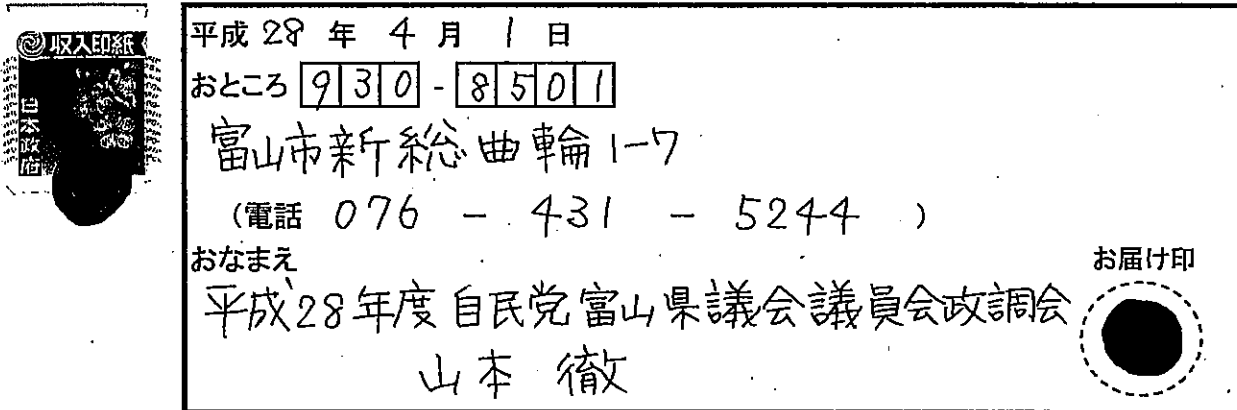 収入印紙
日本政府
平成 28 年 4 月 1 日
おところ 930-8501
富山市新総曲輪1-7
(電話 076 - 431 - 5244 )
おなまえ
お届け印
平成28年度自民党富山県議会議員会政調会
山本 徹